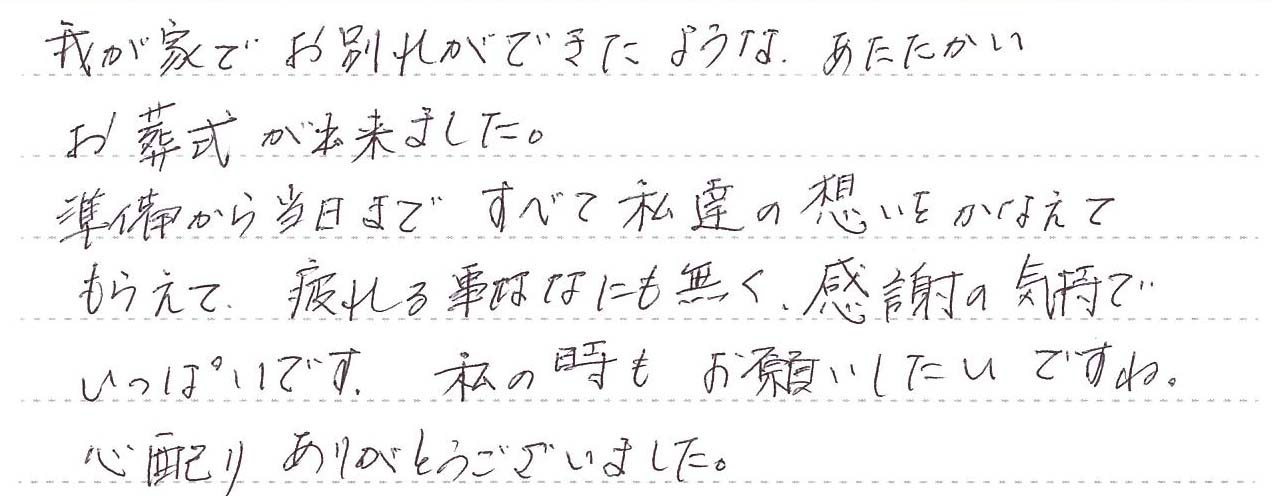 我が家で お別れができたような、あたたかい
お葬式が出来ました。
準備から当日まで すべて私達の想いをかなえて
もらえて、疲れる事はなにも無く、感謝の気持で
いっぱいです。 私の時も お願いしたいですね。
心配り ありがとうございました。